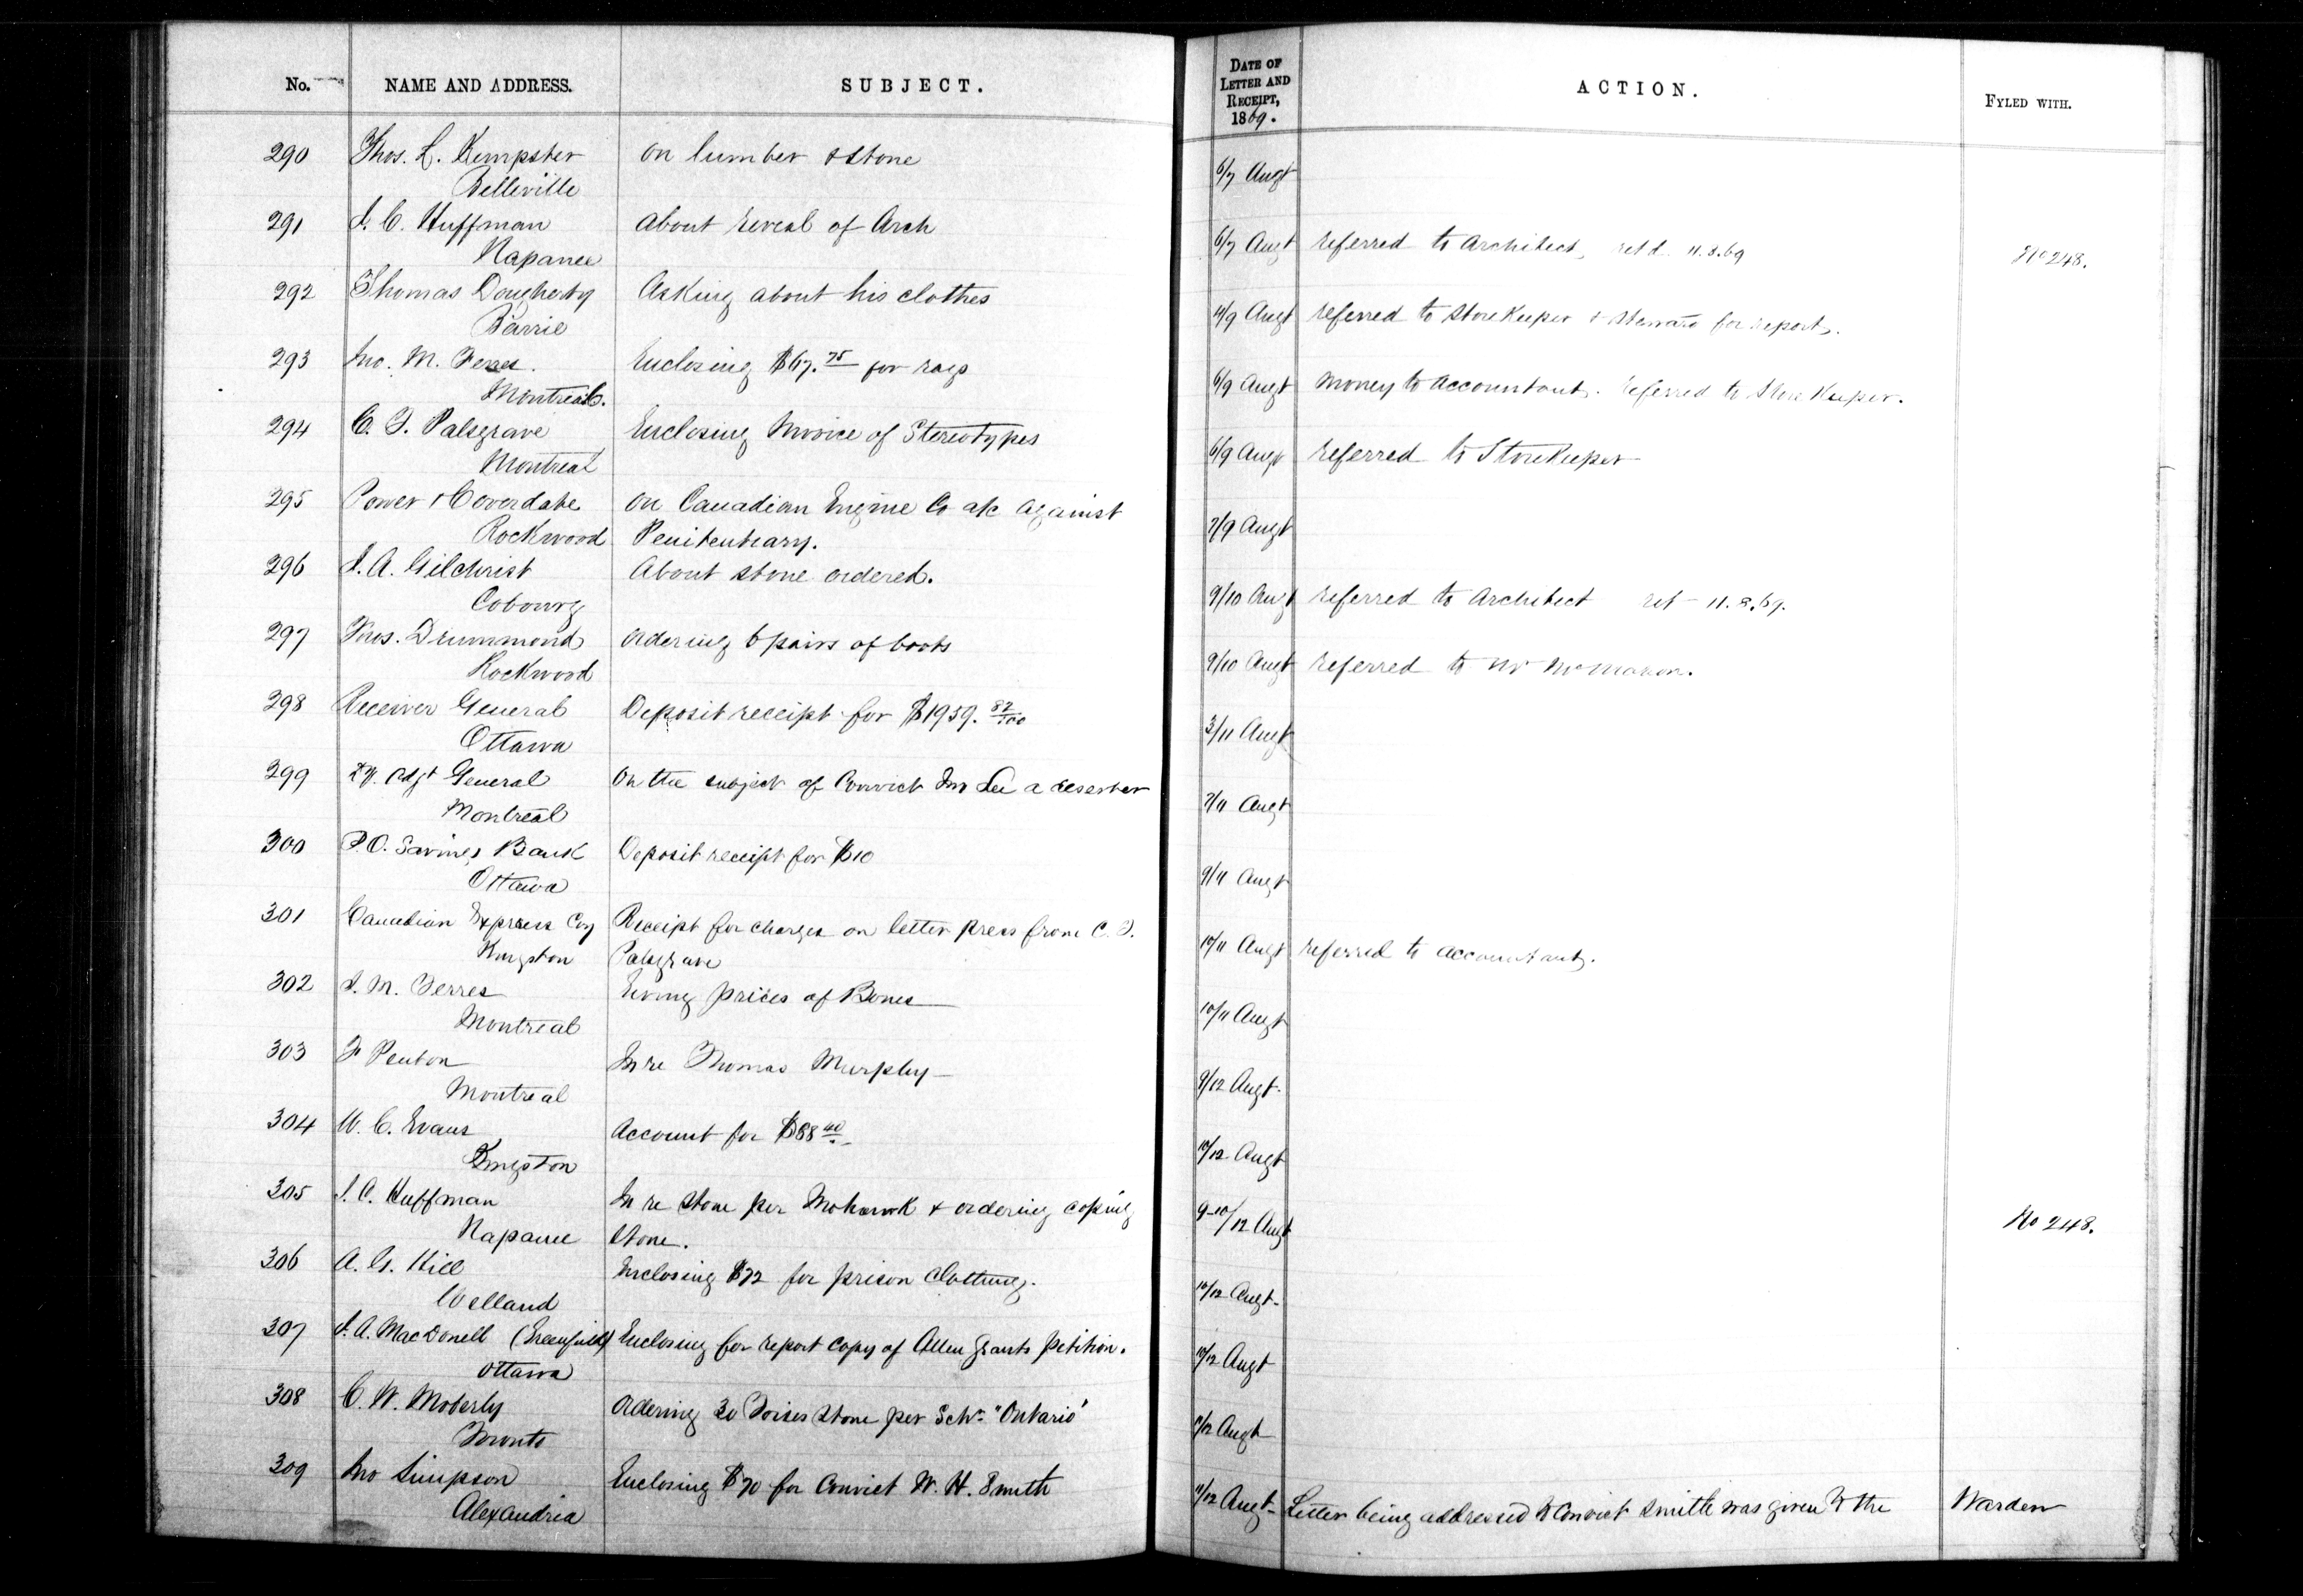 No.
NAME AND ADDRESS.
SUBJECT.
290 Thos. L. Kempster on lumber & stone
Belleville
291 J. C. Huffman about reveal of Arch
Napanee
292 Thomas Dougherty Asking about his clothes
Barrie
293 Jno. M. Ferres. Enclosing $67.75 for rags
Montreal.
294 C. T. Palsgrave Enclosing Invoice of Stereotypes
Montreal
295 Power & Coverdale on Canadian Engine Co a/c against
Rockwood Penitentiary.
296 J. A. Gilchrist About stone ordered.
Cobourg
297 Thos. Drummond ordering 6 pairs of boots
Rockwood
298 Receiver General Deposit receipt for $1959. 82/100
Ottawa
299 Dy. Adjt General On the subject of Convict Jno Lee a deserter
Montreal
300 P.O. Savings Bank Deposit receipt for $10
Ottawa
301 Canadian Express Coy Receipt for charges on letter press from C. T.
Kingston Palsgrave
302 J. M. Ferres Giving prices of Bones
Montreal
303 F Penton In re Thomas Murphy
Montreal
304 W. C. Evans Account for $88 40
Kingston
305 J. C. Huffman In re stone per Mohawk & ordering coping
Napanee stone.
306 A. G. Hill Enclosing $72 for prison clothing.
Welland
307 J. A. MacDonell (Greenfield) Enclosing for report copy of Allen Grants petition.
Ottawa
308 C. W. Moberly Ordering 30 Toises Stone per Schr. "Ontario"
Toronto
309 Jno Simpson Enclosing $70 for Convict W. H. Smith
Alexandria
DATE OF
LETTER AND
RECEIPT,
1869.
ACTION.
FYLED WITH.
6/7 Augt
6/7 Augt referred to Architect, retd. 11.8.69 No 248.
4/9 Augt referred to StoreKeeper & Steward for report.
6/9 Augt Money to Accountant. referred to Store Keeper.
6/9 Augt referred to StoreKeeper
7/9 Augt
9/10 Augt referred to Architect ret 11.8.69.
9/10 Augt referred to Mr McMahon.
3/11 Augt
7/11 Augt
9/11 Augt
10/11 Augt referred to Accountant.
10/11 Augt
9/12 Augt.
10/12 Augt
9-10/12 Augt No 248.
10/12 Augt
10/12 Augt
/12 Augt
11/12 Augt Letter being addressed to Convict Smith was given to the Warden